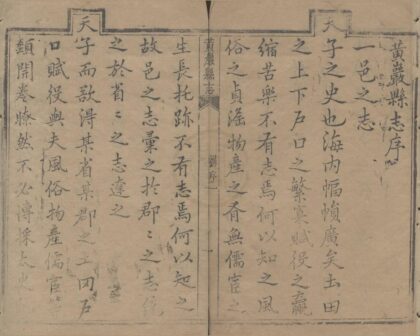 黃巖縣志序
一邑之志
天子之史也海内幅幀廣矣土田
之上下戶口之繁寡賦役之贏
縮苦樂不有志焉何以知之風
俗之貞滛物産之有無儒宦之
黃巖縣志
劉序
一
生長托跡不有志焉何以知之
故邑之志彙之於郡〻之志統
之於省〻之志達之
天子而欲淂其省某郡之土田戶
口賦役與夫風俗物産儒宦
顛開卷瞭然不必傳採太史